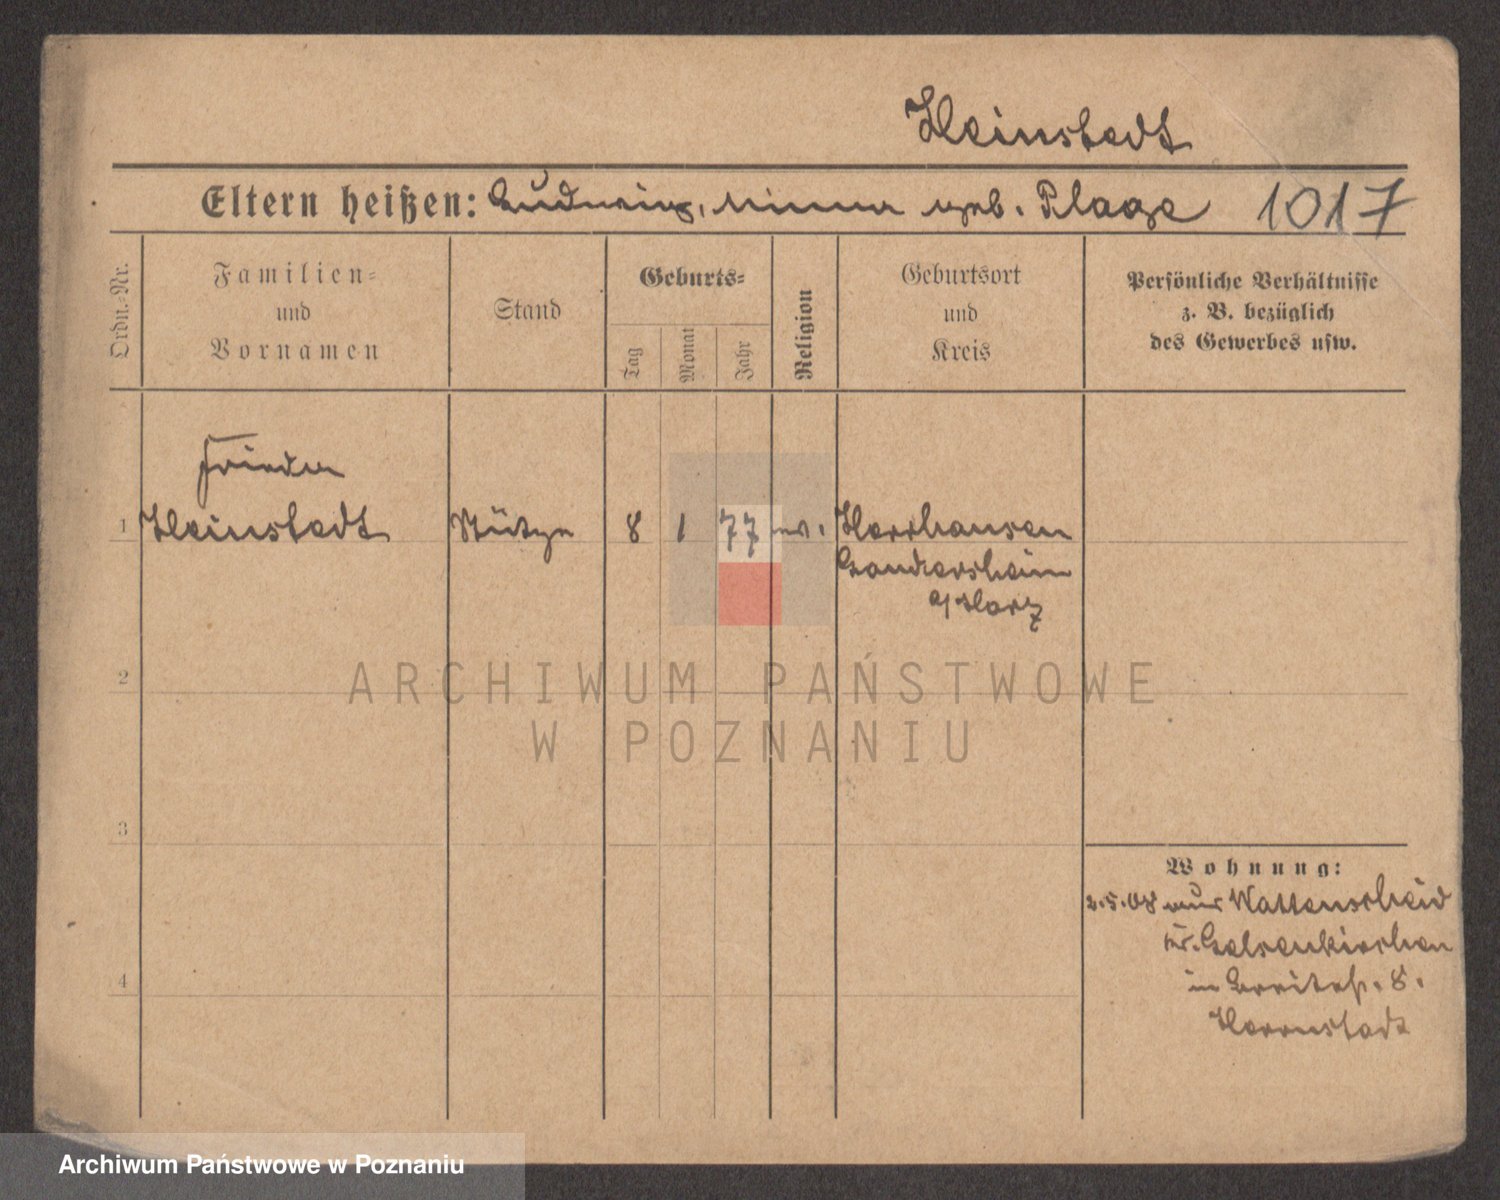 Heinstedt
Eltern heißen: Ludwig, Minna geb. Plage 1017
Ordn.-Nr.
Familien-
und
Vornamen
Stand
Geburts-
Tag
Monat
Jahr
Religion
Geburtsort
und
Kreis
Persönliche Verhältnisse
z. B. bezüglich
des Gewerbes usw.
Frieda
1 Heinstedt Stütze 8 1 77 ev. Harrhausen
Gandersheim
a/Harz
2
3
4
Wohnung:
2.5.08 aus Wattenscheid
Kr. Gelsenkirchen
in Breitestr. 8.
ARCHIWUM PAŃSTWOWE
W POZNANIU
Archiwum Państwowe w Poznaniu